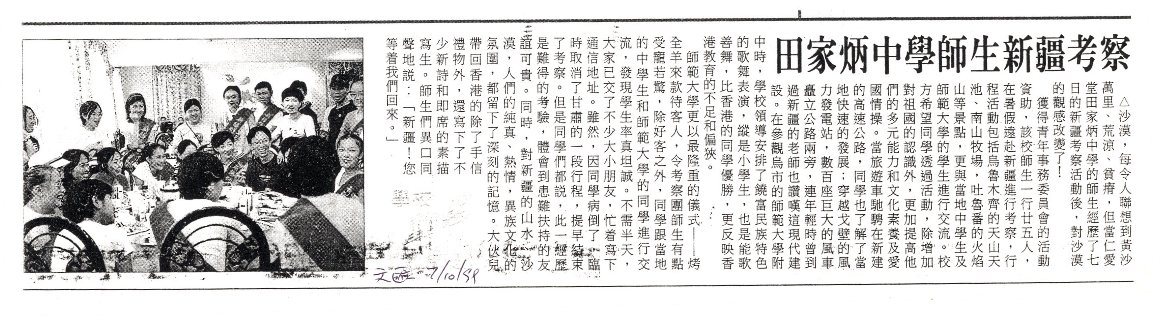 田家炳中學師生新疆考察
△沙漠，每令人聯想到黃沙
萬里、荒涼、貧瘠，但當仁愛
堂田家炳中學的師生經歷了七
日的新疆考察活動後，對沙漠
的觀感改變了！
獲得青年事務委員會的活動
資助，該校師生一行廿五人，
在暑假遠赴新疆進行考察，行
程活動包括烏魯木齊的天山天
池、南山牧場，吐魯番的火焰
山等景點，更與當地中學生及
師範大學的學生進行交流。校
方希望同學透過活動，除增加
對祖國的認識外，更加提高他
們的多元能力和文化素養及愛
國情操。當旅遊車馳騁在新建
的高速公路，同學也了解了當
地快速的發展；穿越戈壁的風
力發電站，數百座巨大的風車
矗立公路兩旁，連年輕時曾到
過新疆的老師也讚嘆這現代建
設。在參觀烏市的師範大學附
中時，學校領導安排了饒富民族特色
的歌舞表演，縱是小學生，也是能歌
善舞，比香港的同學優勝，更反映香
港教育的不足和偏狹。
師範大學更以最隆重的儀式——烤
全羊來款待客人，令考察團師生有點
受寵若驚，除好客之外，同學跟當地
的中學生和師範大學的同學進行交
流，發現學生率真坦誠。不需半天，
大家已交了不少大小朋友，忙着寫下
通信地址。雖然，因同學病倒了，臨
時取消了甘肅的一段行程，提早結束
了考察。但是同學們都說，此一經歷
是難得的考驗，體會到患難扶持的友
誼可貴。同時，對新疆的山水、沙
漠，人們的純真、熱情，異族文化的
氛圍，都留下了深刻的記憶。大伙兒
帶回香港的除了手信
禮物外，還寫下了不
少新詩和即席的素描
寫生。師生們異口同
聲地說：「新疆！您
等着我們回來。」
/10/99